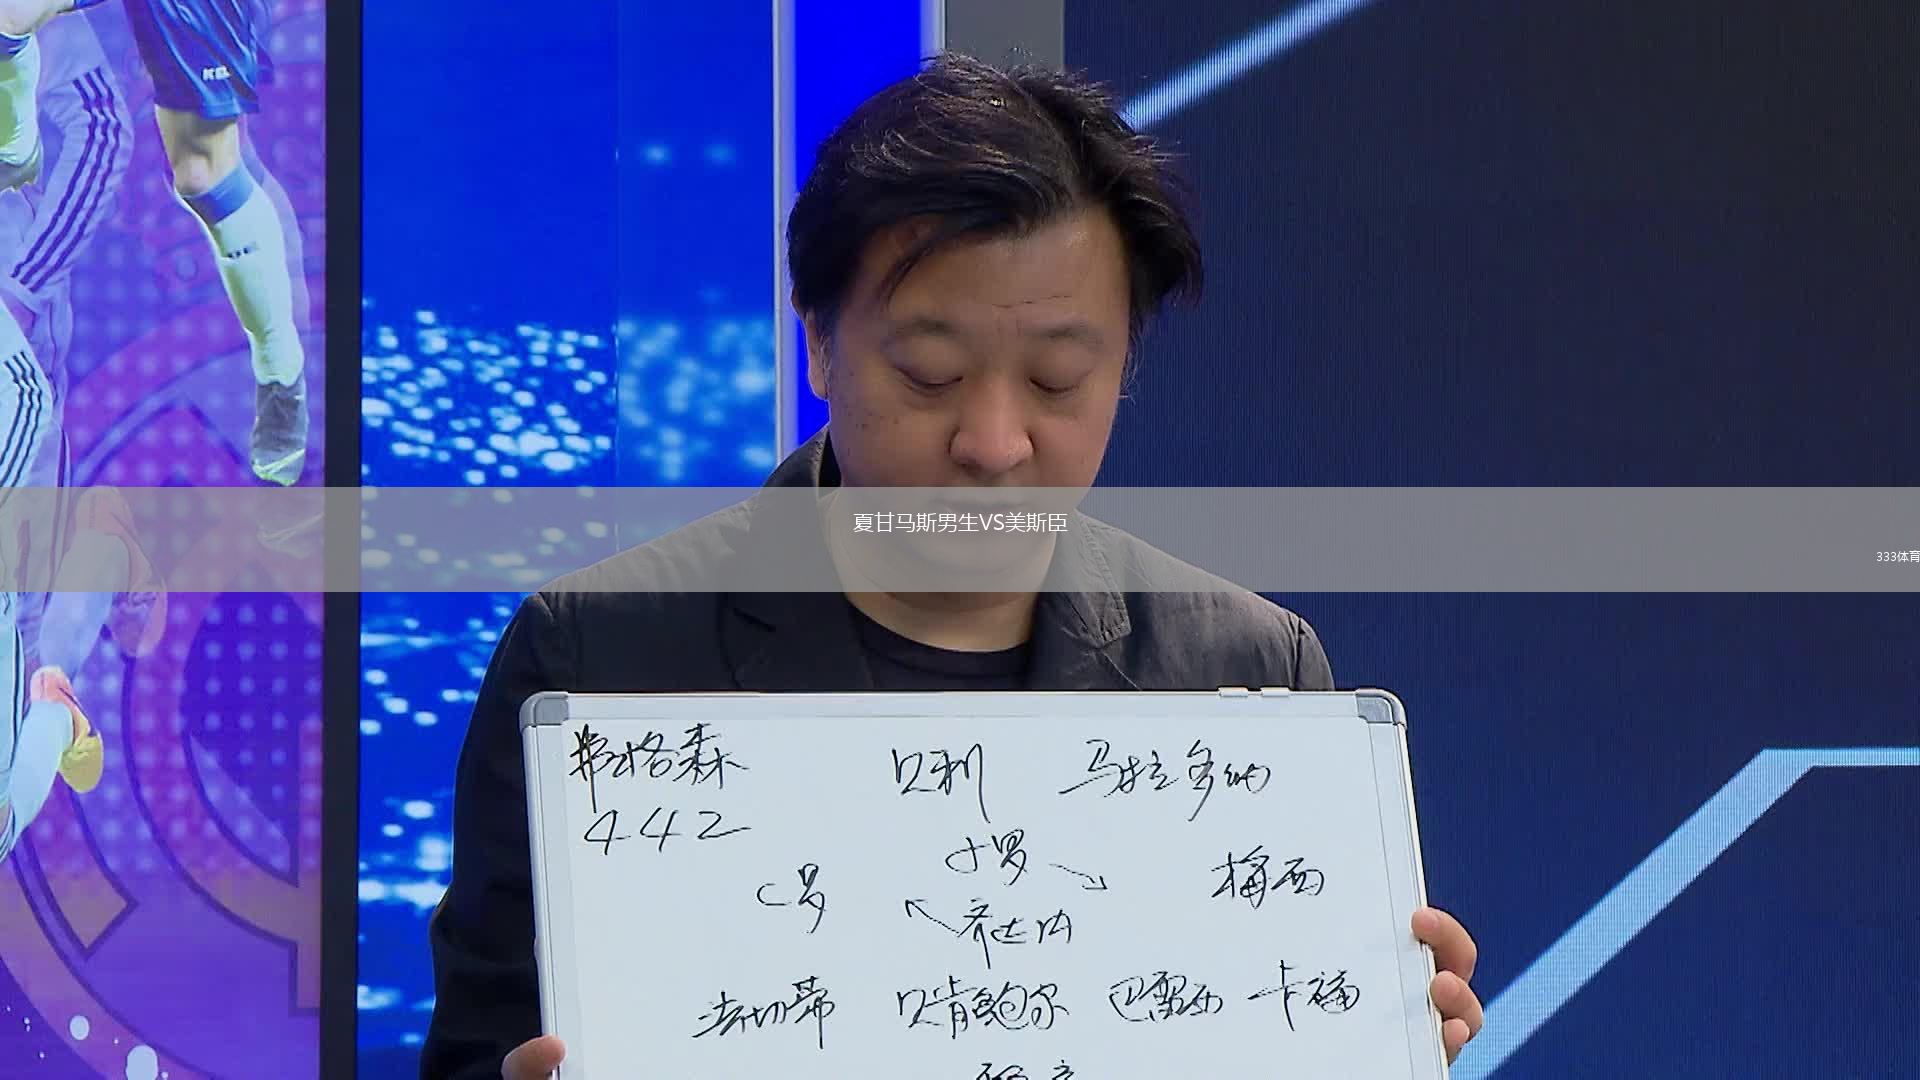 夏甘马斯男生VS美斯臣
333体育
弗格森 贝利 马拉多纳
442
小罗
C罗 梅西
齐达内
法切蒂 贝肯鲍尔 巴雷西 卡福